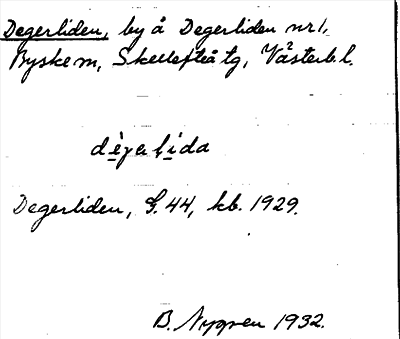 Degerliden, by å Degerliden nr 1,
Byske sn, Skellefteå tg, Västerb. l.
dègalìda
Degerliden, G. 44, kb. 1929.
B. Nygren 1932.